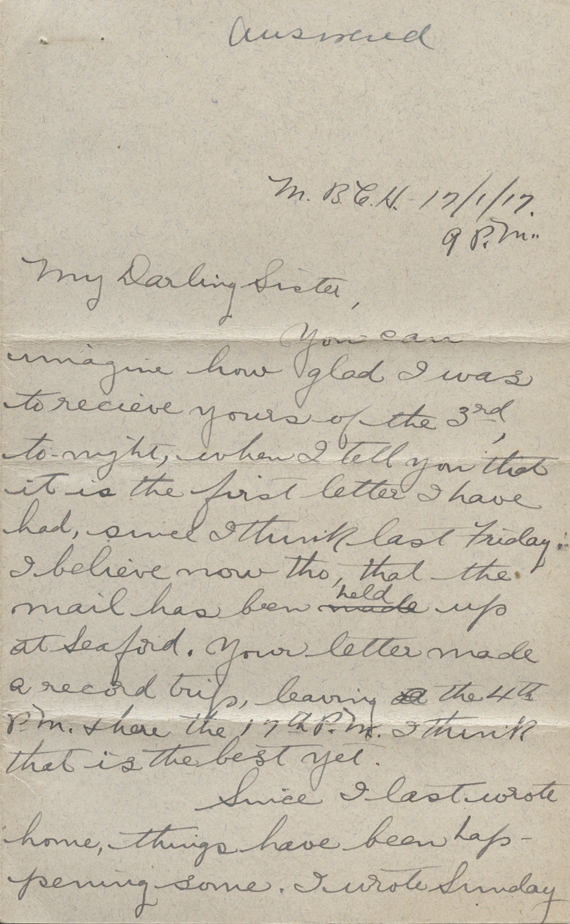 Answered
M. B. C. H. 17/1/17.
9 P.M.
My Darling Sister,
You can
imagine how glad I was
to recieve yours of the 3rd,
to-night, when I tell you that
it is the first letter I have
had, since I think last Friday.
I believe now tho, that the
mail has been made held up
at Seaford. Your letter made
a record trip, leaving the 4th
P.M. & here the 17th P.M. I think
that is the best yet.
Since I last wrote
home, things have been hap-
pening some. I wrote Sunday